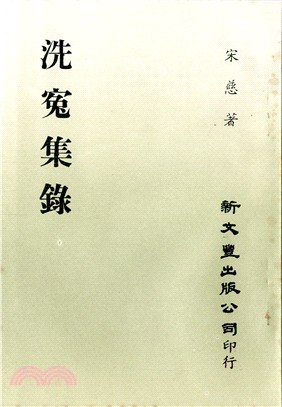 洗冤集錄
宋慈著
新文豐出版公司印行
三民